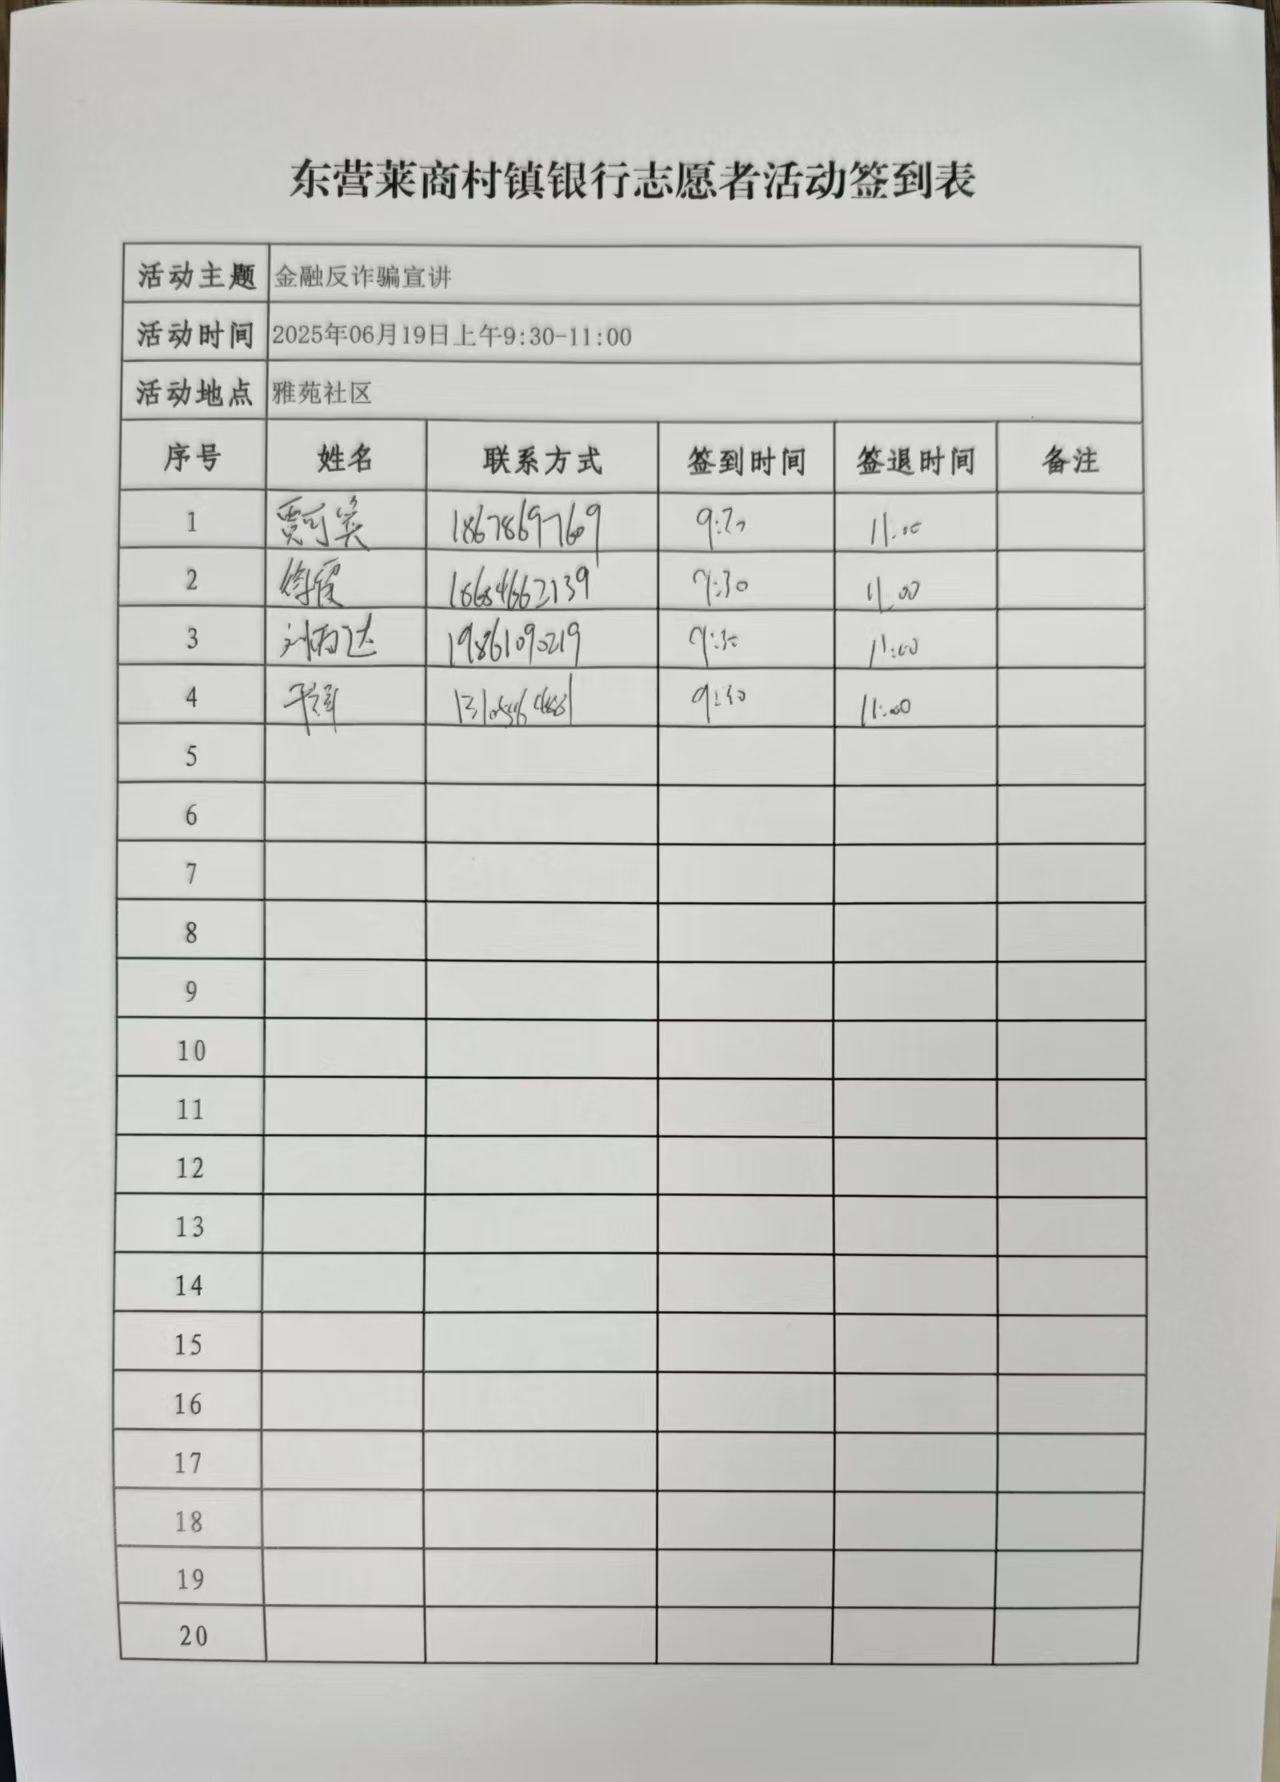 东营莱商村镇银行志愿者活动签到表
活动主题 金融反诈骗宣讲
活动时间 2025年06月19日上午9:30-11:00
活动地点 雅苑社区
序号 姓名 联系方式 签到时间 签退时间 备注
1 贾可 18678697609 11:00
2 徐霞 18684662139 9:30 11:00
3 刘雨达 19861090219 9:30 11:00
4 9:30 11:00
5
6
7
8
9
10
11
12
13
14
15
16
17
18
19
20